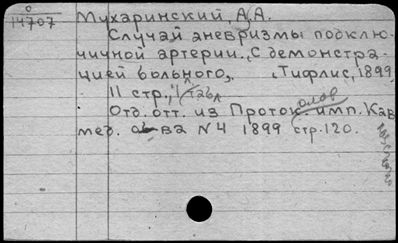 0
14707
Мухаринский, А.А.
Случай аневризмы подклю-
чичной артерии. С демонстра-
цией больного.
Тифлис, 1899
11 стр., 1 табл
Отд. отт. из Протоколов имп. Кав
мед. о-ва №4 1899 стр. 120.